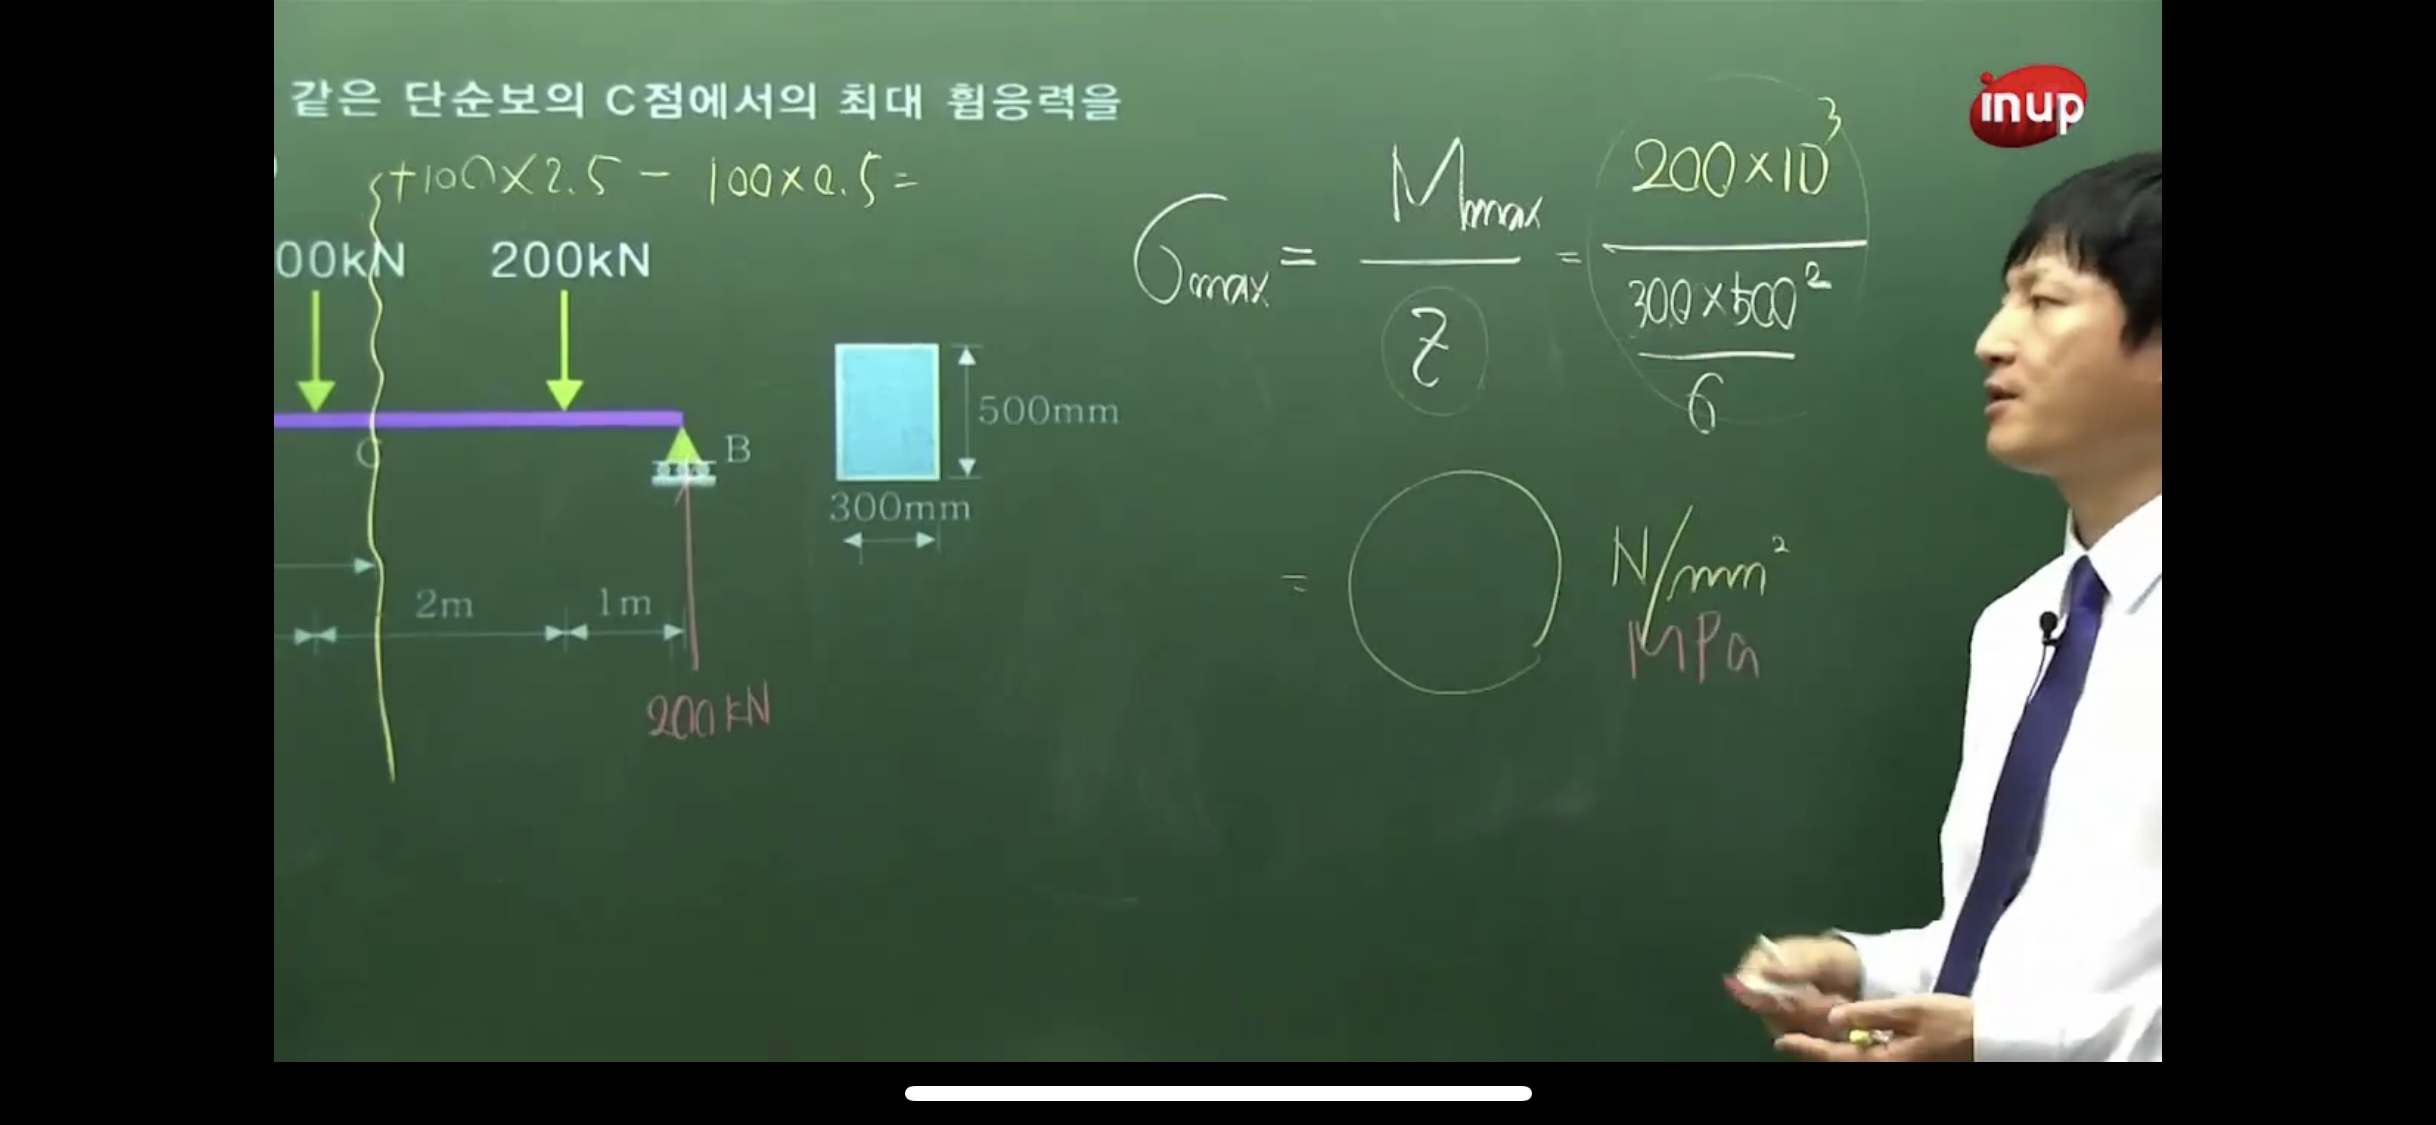 같은 단순보의 C점에서의 최대 휨응력을
+100×2.5 - 100×0.5=
00kN
200kN
C
B
2m
1m
200kN
500mm
300mm
σmax = Mmax / Z = 200×10³ / 300×500² / 6
= N/mm²
MPa
inup